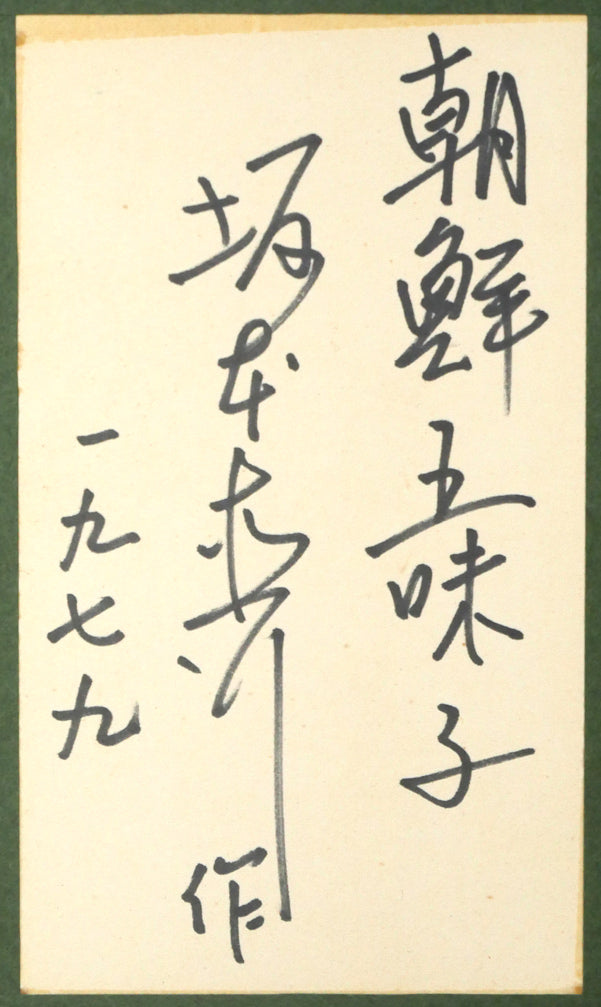 朝鮮五味子
坂本直行作
一九七九